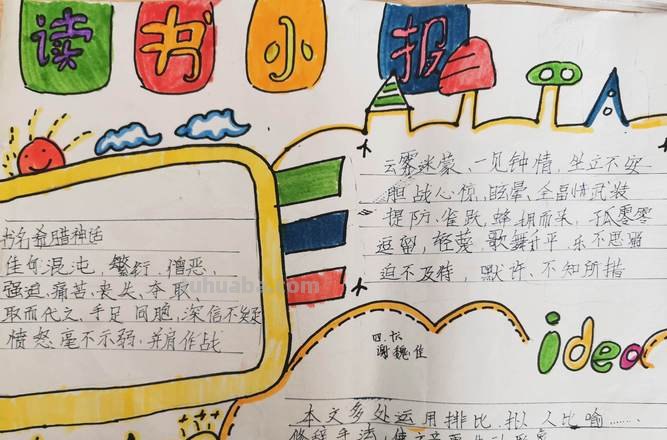 读书小报
云雾迷蒙、一见钟情,坐立不安
胆战心惊,眩晕、全副武装
提防、雀跃,蜂拥而来,孤零零
逗留、轻蔑、歌舞升平,乐不思蜀
迫不及待,默许、不知所措
书名希腊神话
佳句混沌,繁衍,憎恶,
强迫,痛苦、丧失、夺取,
取而代之、手足同胞,深信不疑
愤怒毫不示弱,并肩作战
yuhuaba.com
四.六
谢魏佳
idea
本文多处运用排比,拟人比喻……
修辞手法,使文章更